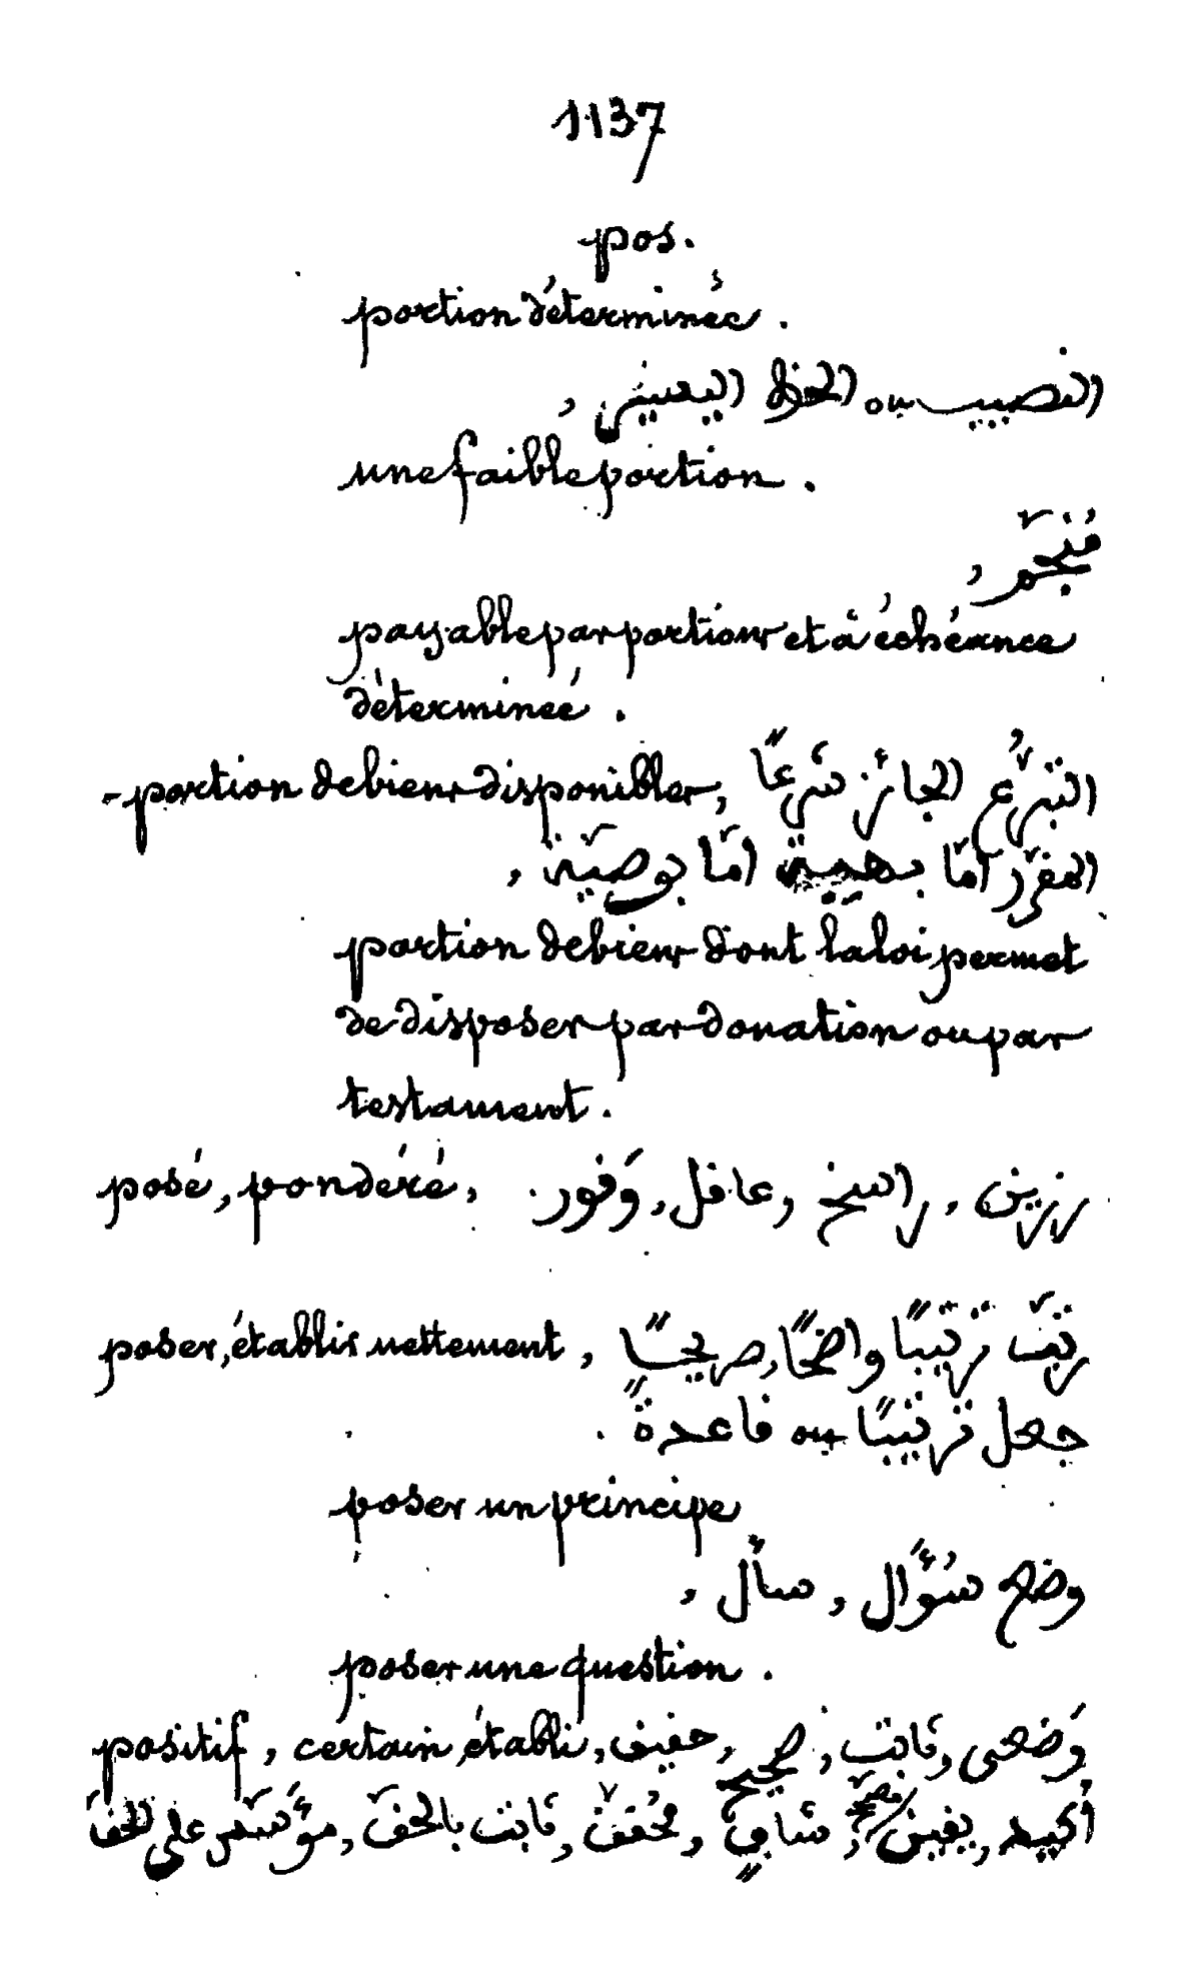 1137
pos.
portion déterminée.
النصيب ou الحظ اليسير,
une faible portion.
مُنَجَّم,
payable par portions et à échéance
déterminée.
- portion de biens disponibles, التبرُّع الجائز شرعًا
المقرّر امّا بهبة امّا بوصيّة,
portion de biens dont la loi permet
de disposer par donation ou par
testament.
posé, pondéré, رزين, راسخ, عاقل, وَقور.
poser, établir nettement, رتّب ترتيبًا واضحًا, صريحًا
جعل ترتيبًا ou قاعدةً.
poser un principe
وضع سُؤَّال, سأل,
poser une question.
positif, certain, établi, وَضعى, ثابت, صحيح, حقيقى,
أكيد, يقين, شافٍ, مُحقّق, ثابت بالحقّ, مؤَسّس على الحقّ